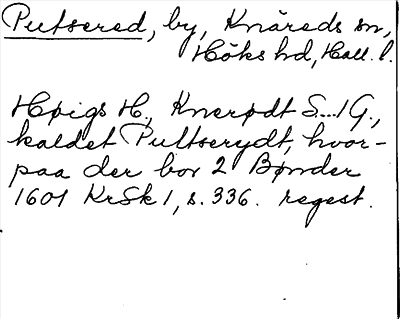 Putsered, by, Knäreds sn,
Höks hd, Hall. l.
Høigs H., Knerødt S...1 G.,
kaldet Pultserydt, hvor-
paa der bor 2 Bønder
1601 KrSk 1, s. 336. regest.